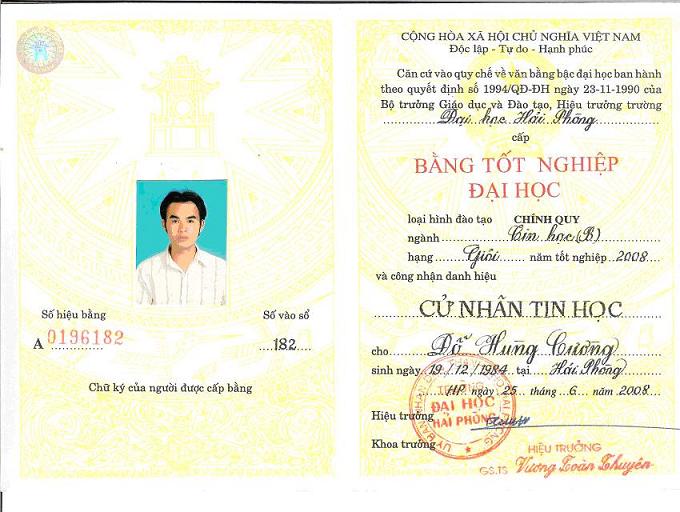 Số hiệu bằng
Số vào sổ
A 0196182
182
Chữ ký của người được cấp bằng
CỘNG HÒA XÃ HỘI CHỦ NGHĨA VIỆT NAM
Độc lập - Tự do - Hạnh phúc
Căn cứ vào quy chế về văn bằng bậc đại học ban hành
theo quyết định số 1994/QĐ-ĐH ngày 23-11-1990 của
Bộ trưởng Giáo dục và Đào tạo, Hiệu trưởng trường
Đại học Hải Phòng
cấp
BẰNG TỐT NGHIỆP
ĐẠI HỌC
loại hình đào tạo CHÍNH QUY
ngành Tin học (B)
hạng Giỏi năm tốt nghiệp 2008
và công nhận danh hiệu
CỬ NHÂN TIN HỌC
cho Đỗ Hùng Cường
sinh ngày 19/12/1984 tại Hải Phòng
HP ngày 25 tháng 6 năm 2008
Hiệu trưởng
ĐẠI HỌC
HẢI PHÒNG
Khoa trưởng
HIỆU TRƯỞNG
GS.TS Vương Toàn Thuyên